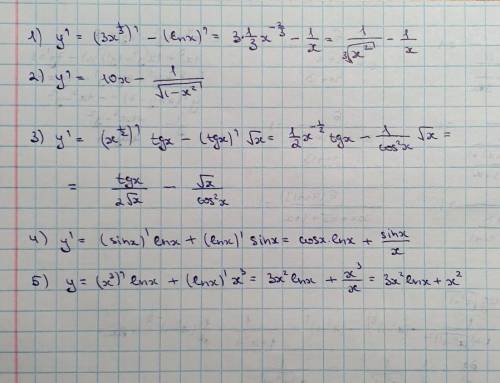 1) y' = (3x^(1/3))' - (lnx)' = 3·1/3 x^(-2/3) - 1/x = 1/∛(x²) - 1/x
2) y' = 10x - 1/√(1-x²)
3) y' = (x^(1/2))' tgx - (tgx)' √x = 1/2 x^(-1/2) tgx - 1/cos²x √x =
= tgx/2√x - √x/cos²x
4) y' = (sinx)' lnx + (lnx)' sinx = cosx·lnx + sinx/x
5) y = (x³)' lnx + (lnx)' x³ = 3x² lnx + x³/x = 3x² lnx + x²